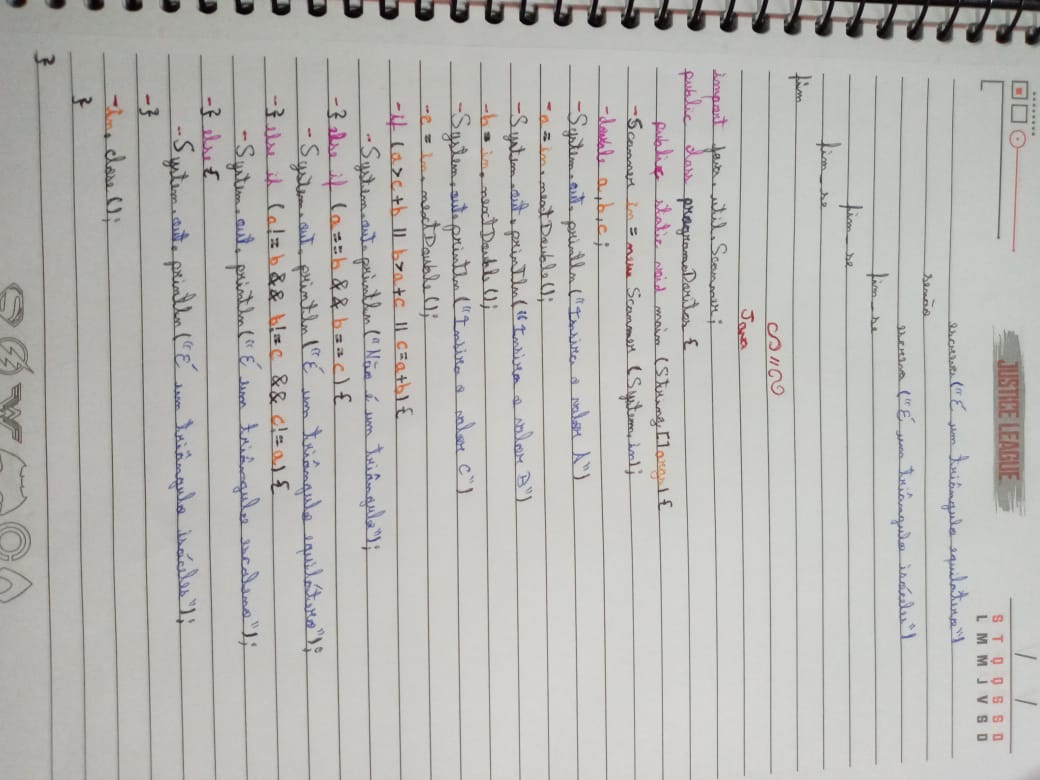 JUSTICE LEAGUE
S T Q Q S S D
L M M J V S D
escreva ("É um triângulo equilátero")
senão
escreva ("É um triângulo isóceles")
fim-se
fim-se
fim-se
fim
Java
import java.util.Scanner;
public class programaDaritas {
public static void main (String[] args) {
-Scanner in = new Scanner (System.in);
-double a, b, c;
-System.out.println ("Insira o valor A")
-a = in.nextDouble();
-System.out.println ("Insira o valor B")
-b = in.nextDouble();
-System.out.println ("Insira o valor C")
-c = in.nextDouble();
-if (a>c+b || b>a+c || c=a+b) {
-System.out.println ("Não é um triângulo");
-} else if (a==b && b==c) {
-System.out.println ("É um triângulo equilátero");
-} else if (a!=b && b!=c && c!=a) {
-System.out.println ("É um triângulo escaleno");
-} else {
-System.out.println ("É um triângulo isóceles");
-}
-in.close();
}
}